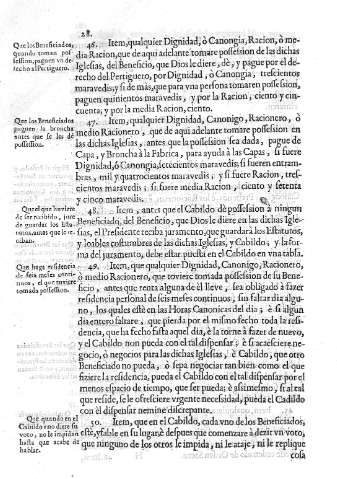 28.
Que los Beneficiados,
quando toman possession, paguen
derecho al Pertiguero.
46. Item, qualquier Dignidad, ò Canongia, Racion, ò media
Racion, que de aqui adelante tomare possession de las dichas
Iglesias, del Beneficio, que Dios le diere, dè, y pague por el derecho
del Pertiguero, por Dignidad, ò Canongia, trescientos
maravedis; y si de mas, que para vna persona tomaren possession,
paguen quinientos maravedis, y por la Racion, ciento y cincuenta,
y por la media Racion, ciento.
Que los Beneficiados
paguen la broncha
antes que se les dè
possession.
47. Item, qualquier Dignidad, Canonigo, Racionero, ò
medio Racionero, que de aqui adelante tomare possession en
las dichas Iglesias, antes que la possession sea dada, pague de
Capa, y Broncha à la Fabrica, para ayuda à las Capas, si fuere
Dignidad, ò Canongia, setecientos maravedis, si fueren entrambras,
mil y quatrocientos maravedis; y si fuere Racion, trescientos
maravedis; si fuere media Racion, ciento y setenta
y cinco maravedis.
Que el que huviere
de ser recibido, jure
de guardar los
antes que le reciban.
48. Item, antes que el Cabildo dè possession à ningun
Beneficiado, del Beneficio, que Dios le diere en las dichas Iglesias,
el Presidente reciba juramento, que guardarà los Estatutos,
y loables costumbres de las dichas Iglesias, y Cabildo; y la forma
del juramento, debe estar puesta en el Cabildo en vna tabla.
Que haga residencia
de seis meses continuos, el que tuviere
tomada possession.
49. Item, que qualquier Dignidad, Canonigo, Racionero,
ò medio Racionero, que toviere tomada possession de su Beneficio,
antes que renta alguna de èl lleve, sea obligado à fazer
residencia personal de seis meses continuos, sin falcar dia alguno,
los quales estè en las Horas Canonicas del dia; è si algun
dia entero falcare, que pierda por el mismo fecho toda la residencia,
que ha fecho fasta aquel dia, è la torne à fazer de nuevo,
y el Cabildo non pueda con el tal dispensar; è si acaesciere negocio,
ò negocios para las dichas Iglesias, è Cabildo, que otro
Beneficiado no pueda, ò sepa negociar tan bien como el que
fiziere la residencia, pueda el Cabildo con el tal dispensar por el
menos espacio de tiempo, que ser pueda; è assimesmo, si al tal
que reside, se le ofresciere vrgente necessidad, pueda el Cabildo
con èl dispensar nemine discrepante.
Que quando en el
Cabildo vno diere su
voto, no le impidan
hasta que acabe de
hablar.
50. Item, que en el Cabildo, cada vno de los Beneficiados,
estè, y fable en su lugar, è despues que comenzare à dezir vn voto,
que ninguno de los otros le impida, ni le ataje, ni le replique
cosa